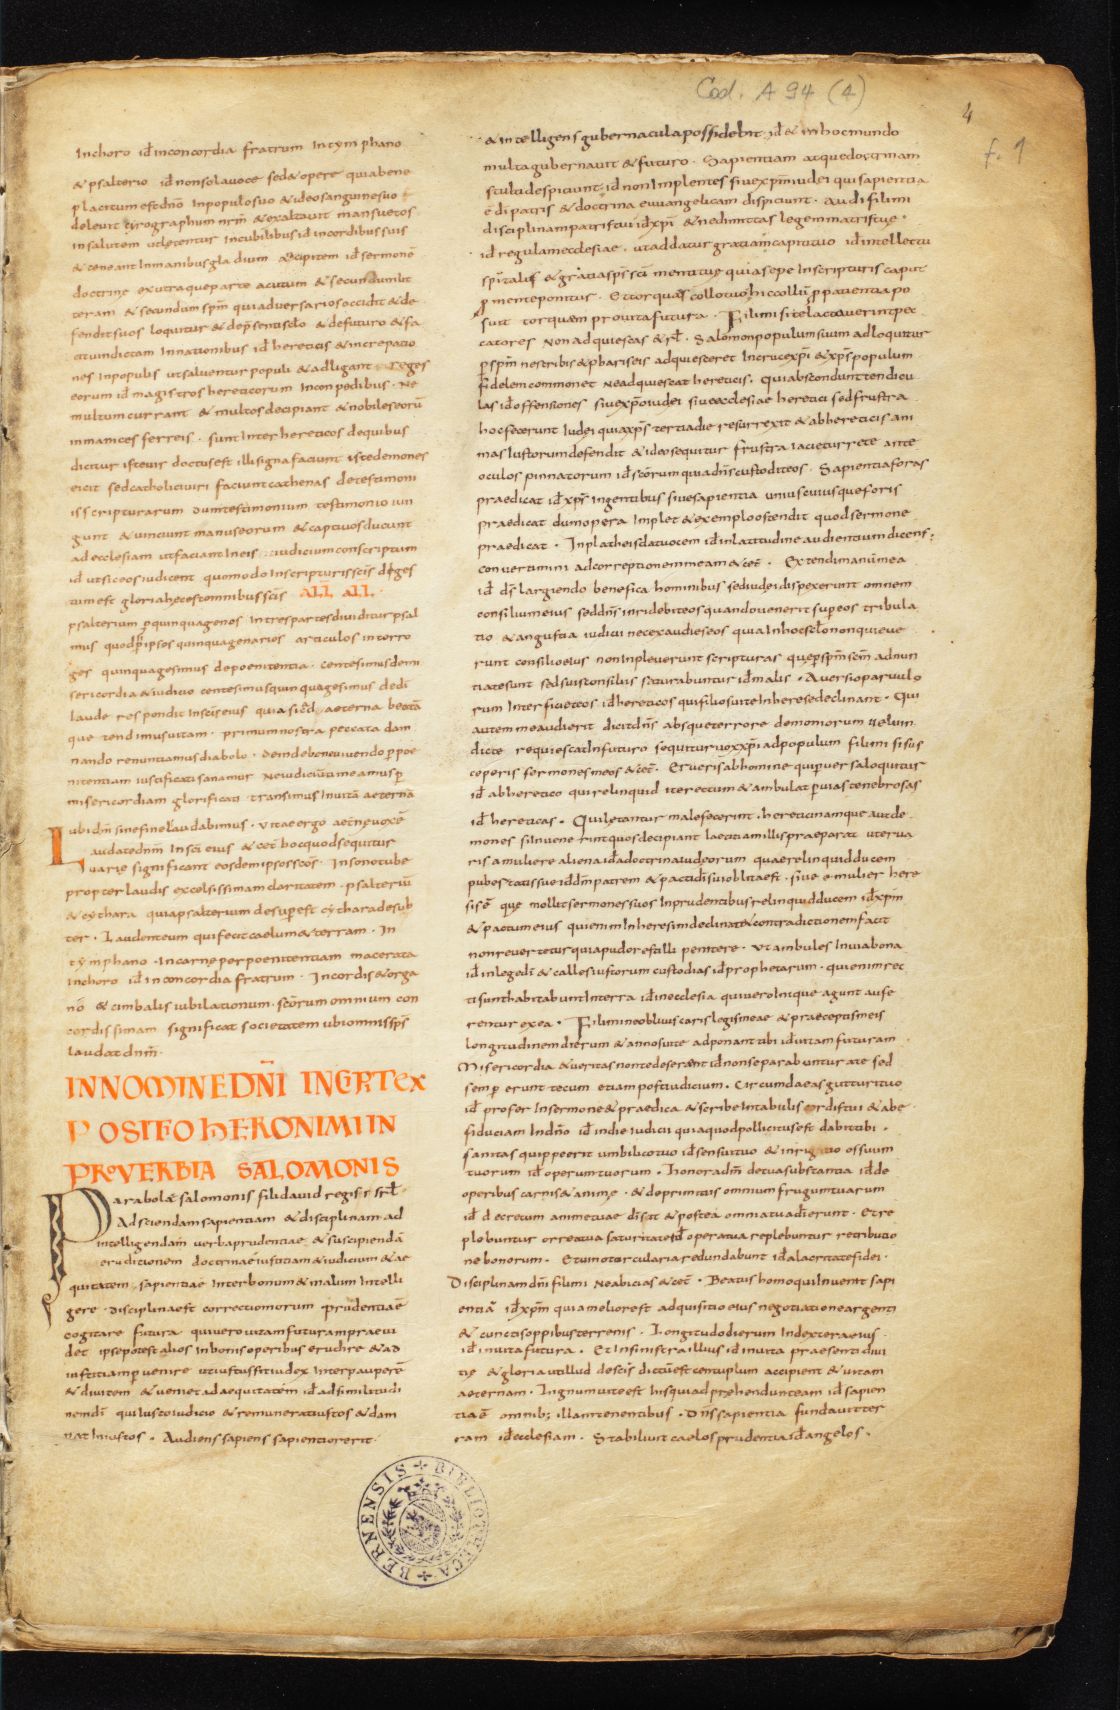 Cod. A 94 (4)
4
f. 1
Inchoro id̄ inconcordia fratrum Intymphano
& psalterio id̄ nonsolauoce sed& opere quiabene
placitum estdn̄o Inpopulosuo & ideosanguinesuo
deleuit cyrographum nr̄m & exaltauit mansuetos
Insalutem utletentur Incubilibus id̄ incordibussuis
& teneant Inmanibusgladium ancipitem id̄ sermonē
doctrine exutraqueparte acutum & secundumlit
teram & secundum spm̄ quiaduersariosoccidit & de
fenditsuos loquitur & de p̄sentisclo & defuturo & fa
cituindictam Innationibus id̄ hereticis & increpatio
nes Inpopulis utsaluentur populi & adligant reges
eorum id̄ magistros hereticorum Inconpedibus. Ne
multum currant & multos decipiant & nobileseorū
inmanices ferreis. sunt Inter hereticos dequibus
dicitur isteuir doctusest illisignafaciunt istedemones
eicit sedcatholiciuiri faciuntcathenas detestimoni
is scripturarum dumtestimonium testimonio iun
gunt & uinciunt manuseorum & captiuosducunt
adecclesiam utfaciantIneis iudiciumconscriptum
id̄ utsiceosiudicent quomodo Inscripturisscīs diges
tumest gloriahecestomnibusscīs ALL ALL.
psalterium p̄quinquagenos Intrespartesdiuiditurpsal
mus quod p̄ ipsos quinquagenarios articulos interro
ges quinquagesimus depoenitentia. centesimusdemi
sericordia & iudicio centesimusquinquagesimus dedī
laude respondit Inscīseius quia sic ad aeterna beatā
que tendimusuitam. primumnostra peccata dam
nando renuntiamusdiabolo. deindebeneuiuendo p̄poe
nitentiam iustificati sanamur Neiudiciūtimeamus p̄
misericordiam glorificati transimus Inuitā aeternā
Lubidm̄ sinefine laudabimus. Vitaeergo aetneuoxē
audatednm̄ Inscī eius & cet̄ hocquodsequitur
uarie significant eosdemipsosscōs. Insonotube
propter laudis excelsissimam claritatem. psalteriū
& cythara quiapsalterium desuperest cytharadesub
ter. Laudenteum quifecitcaelum&terram. In
tymphano. Incarneperpoenitentiam macerata
Inchoro id̄ Inconcordia fratrum. Incordis&orga
nō & cimbalis iubilationum. scōrum omnium con
cordissimam significat societatem ubiomnissps̄
laudatdnm̄.
INNOMINEDN̄I INCIPIT EX
POSITIO HIERONIMI IN
PROVERBIA SALOMONIS
Parabolae salomonis filidauid regis isrl̄
Adsciendamsapientiam & disciplinam. ad
intelligendam uerbaprudentiae & suscipiendā
eruditionem doctrinae iustitiam & iudicium & ae
quitatem. sapientiae Interbonum & malum Intelli
gere. disciplinaest correctiomorum prudentiaē
cogitare futura. quiuero uitamfuturampraeui
det ipsepotest alios Inbonisoperibus erudire & ad
iustitiamp̄uenire utiustussitiudex Interpauperē
& diuitem & ueniet adaequitatem id̄ adsimilitudi
nemdī quiiustoiudicio & remuneratiustos & dam
natiniustos. Audienssapiens sapientiorerit.
& intelligensgubernaculapossidebit. id̄ & inhocmundo
multagubernauit & futuro. Sapientiam atquedoctrinam
stultidespiciunt. id̄ nonImplentes siuexpm̄iudei quisapientia
ē dī patris & doctrina euuangelicam dispiciunt. audifilimi
disciplinampatristui id̄xpī & nedimittas legemmatristue.
id̄ regulamecclesiae. utaddatur gratiamcapitituo id̄intellectu
spīritalis & gratiasps̄ scī mentitue quiasepe Inscripturis caput
p̄ menteponitur. & torques collotuo hiccollū p̄patientiapo
suit torquem prouitafutura. Filimi sitelactauerintpec
catores Non adquiescas & rl̄. Salomonpopulumsuum adloquitur
p̄spm̄ nescribis & phariseis adquiesceret Incrucexpī & xps̄populum
fidelemcommonet Neadquiescat hereticis. Quiabscondunttendicu
las id̄offensiones siuexpōiudei siueecclesiae heretici sedfrustra
hocfecerunt Iudei quiaxps̄ tertiadie resurrexit & abhereticis ani
masIustorumdefendit & ideosequitur frustra iacieturrete ante
oculos pinnatorum id̄scōrum quiadn̄scustoditeos. Sapientiaforas
praedicat id̄xps̄ Ingentibus siuesapientia uniuscuiusqueforis
praedicat dumopera Implet & exemploostendit quodsermone
praedicat. Inplateisdatuocem id̄Inlatitudine audientiumdicens:
conuertimini adcorreptionemmeam & cet̄. Extendimanūmea
id̄ dn̄s largiendo benefica hominibus sediudeidispexerunt omnem
consiliumeius seddn̄s inridebiteosquandouenerit sup̄eos tribula
tio & angustia iudicii necexaudieseos quiaInhocsclōnonquieue
runt consilioeius nonInpleuerunt scripturas quep̄spm̄scm̄ adnun
tiatesunt sedsuisconsiliis saturabuntur id̄malis. Auersioparuulo
rum Interficieteos id̄hereticos quifiliosuiteInheresedeclinant. Qui
autemmeaudierit dicitdn̄s absqueterrore demoniorum uelum
dicte requiescatInfuturo sequituruoxxpī adpopulum filimi sisus
ceperis sermonesmeos & cet̄. Eteruerisabhomine quip̄uersaloquitur
id̄ abheretico quirelinquid iterrectum & ambulat p̄uiastenebrosas
id̄ hereticas. Quiletantur malefecerint. hereticinamque autde
mones siInuenerintquosdecipiant laetitiamillispraeparat uterua
ris amuliere aliena id̄adoctrinaiudeorum quaerelinquidducem
pubertatissue id̄dm̄patrem & pactidīsuioblitaest. siue e mulier here
sisē que mollitsermonessuos Inprudentibusrelinquidducem id̄xpm̄
& pactumeius quienimInheresimdeclinat&contradictionemfacit
nonreuerteturquiapudorestilli penitere. Ut ambules Inuiabona
id̄inlegedī & callesiustorum custodias id̄prophetarum. quienimrec
tisunthabitabuntInterra id̄inecclesia quiueroInique agunt aufe
renturexea. Filiminobliuiscaris legismeae & praeceptismeis
longitudinemdierum & annosuite adponanttibi id̄uitamfuturam
Misericordia & ueritas nontedeserant id̄nonseparabunturate sed
semp̄ erunt tecum etiampostiudicium. Circumdaeasgutturituo
id̄ profer Insermone & praedica & scribeIntabulis cordistui & abe
fiduciam Indn̄o id̄ indie iudicii quiaquodpollicitusest dabittibi.
sanitas quippeerit umbilicotuo id̄sensuituo & inrigatio ossuum
tuorum id̄ operumtuorum. Honoradm̄ detuasubstantia id̄de
operibus carnis & anime. & deprimitiis omniumfrugumtuarum
id̄ decretum animetuae discat & postea omniatuadierunt. Etre
plebuntur orreatua saturitate id̄ operatua replebuntur retributio
nebonorum. Etuinotorcularia redundabunt id̄alacritatefidei.
Disciplinamdn̄i filimi Neabicias & cet̄. Beatus homoquiInuenit sapi
entiā id̄xpm̄ quiameliorest adquisitio eius negotiationeargenti
& cunctisoppibusterrenis. Longitudodierum Indexteraeius.
id̄ inuitafutura. EtInsinistraillius id̄ inuita praesentidiui
tie & gloria utillud descīs dictūest centuplum accipient & uitam
aeternam. Lignumuiteest hisquiadprehenduntteam id̄ sapien
tiaē omnib; illamtenentibus. Dn̄ssapientia fundauitter
ram id̄ecclesiam. Stabiliuit caelosprudentia id̄angelos.
BIBLIOTHECA BERNENSIS